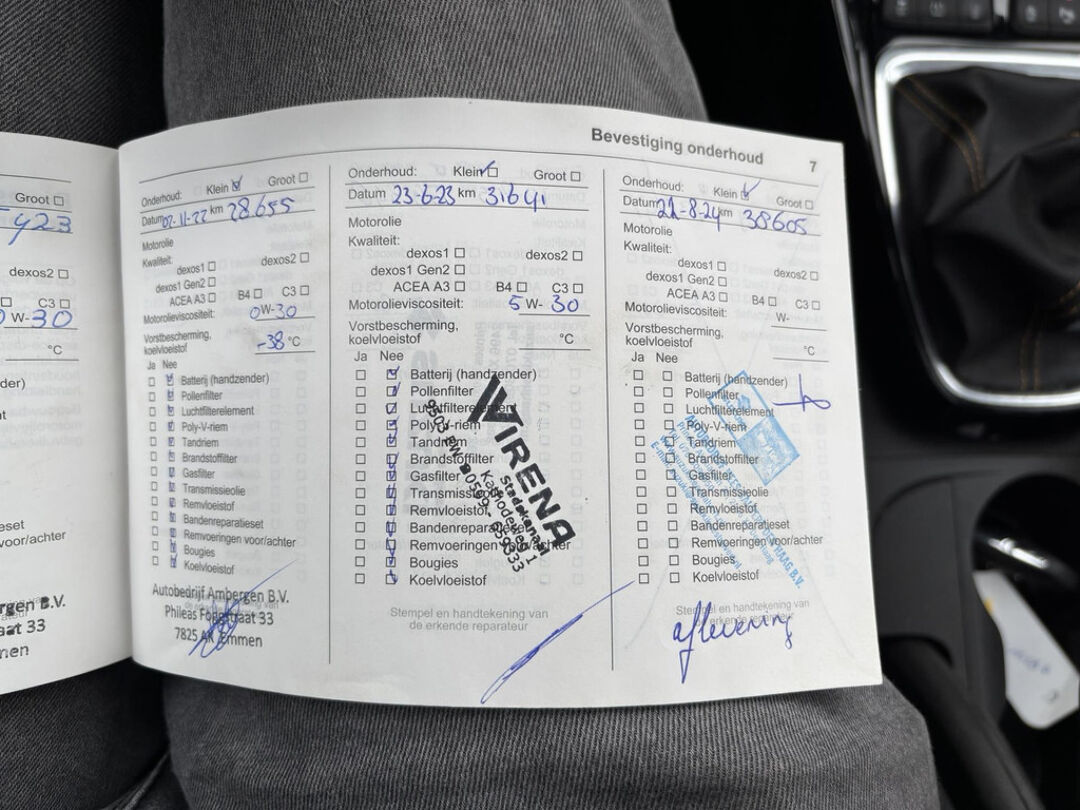 Bevestiging onderhoud 7
Groot
423
dexos2
C3
W-30
°C
der)
nt
eset
voor/achter
rgen B.V.
aat 33
nen
Onderhoud: Klein Groot
Datum 02-11-22 km 28.655
Motorolie
Kwaliteit:
dexos1 dexos2
dexos1 Gen2
ACEA A3 B4 C3
Motorolieviscositeit: 0W-30
Vorstbescherming,
koelvloeistof -38 °C
Ja Nee
Batterij (handzender)
Pollenfilter
Luchtfilterelement
Poly-V-riem
Tandriem
Brandstoffilter
Gasfilter
Transmissieolie
Remvloeistof
Bandenreparatieset
Remvoeringen voor/achter
Bougies
Koelvloeistof
Autobedrijf Ambergen B.V.
Phileas Foggstraat 33
7825 AK Emmen
Onderhoud: Klein Groot
Datum 23-6-23 km 31641
Motorolie
Kwaliteit:
dexos1 dexos2
dexos1 Gen2
ACEA A3 B4 C3
Motorolieviscositeit: 5W-30
Vorstbescherming,
koelvloeistof °C
Ja Nee
Batterij (handzender)
Pollenfilter
Luchtfilterelement
Poly-V-riem
Tandriem
Brandstoffilter
Gasfilter
Transmissieolie
Remvloeistof
Bandenreparatieset
Remvoeringen voor/achter
Bougies
Koelvloeistof
WIRENA
Stadskanaal
Stempel en handtekening van
de erkende reparateur
Onderhoud: Klein Groot
Datum 22-8-24 km 38605
Motorolie
Kwaliteit:
dexos1 dexos2
dexos1 Gen2
ACEA A3 B4 C3
Motorolieviscositeit: W-
Vorstbescherming,
koelvloeistof °C
Ja Nee
Batterij (handzender)
Pollenfilter
Luchtfilterelement
Poly-V-riem
Tandriem
Brandstoffilter
Gasfilter
Transmissieolie
Remvloeistof
Bandenreparatieset
Remvoeringen voor/achter
Bougies
Koelvloeistof
DEN HAAG B.V.
Stempel en handtekening van
de erkende reparateur
aflevering